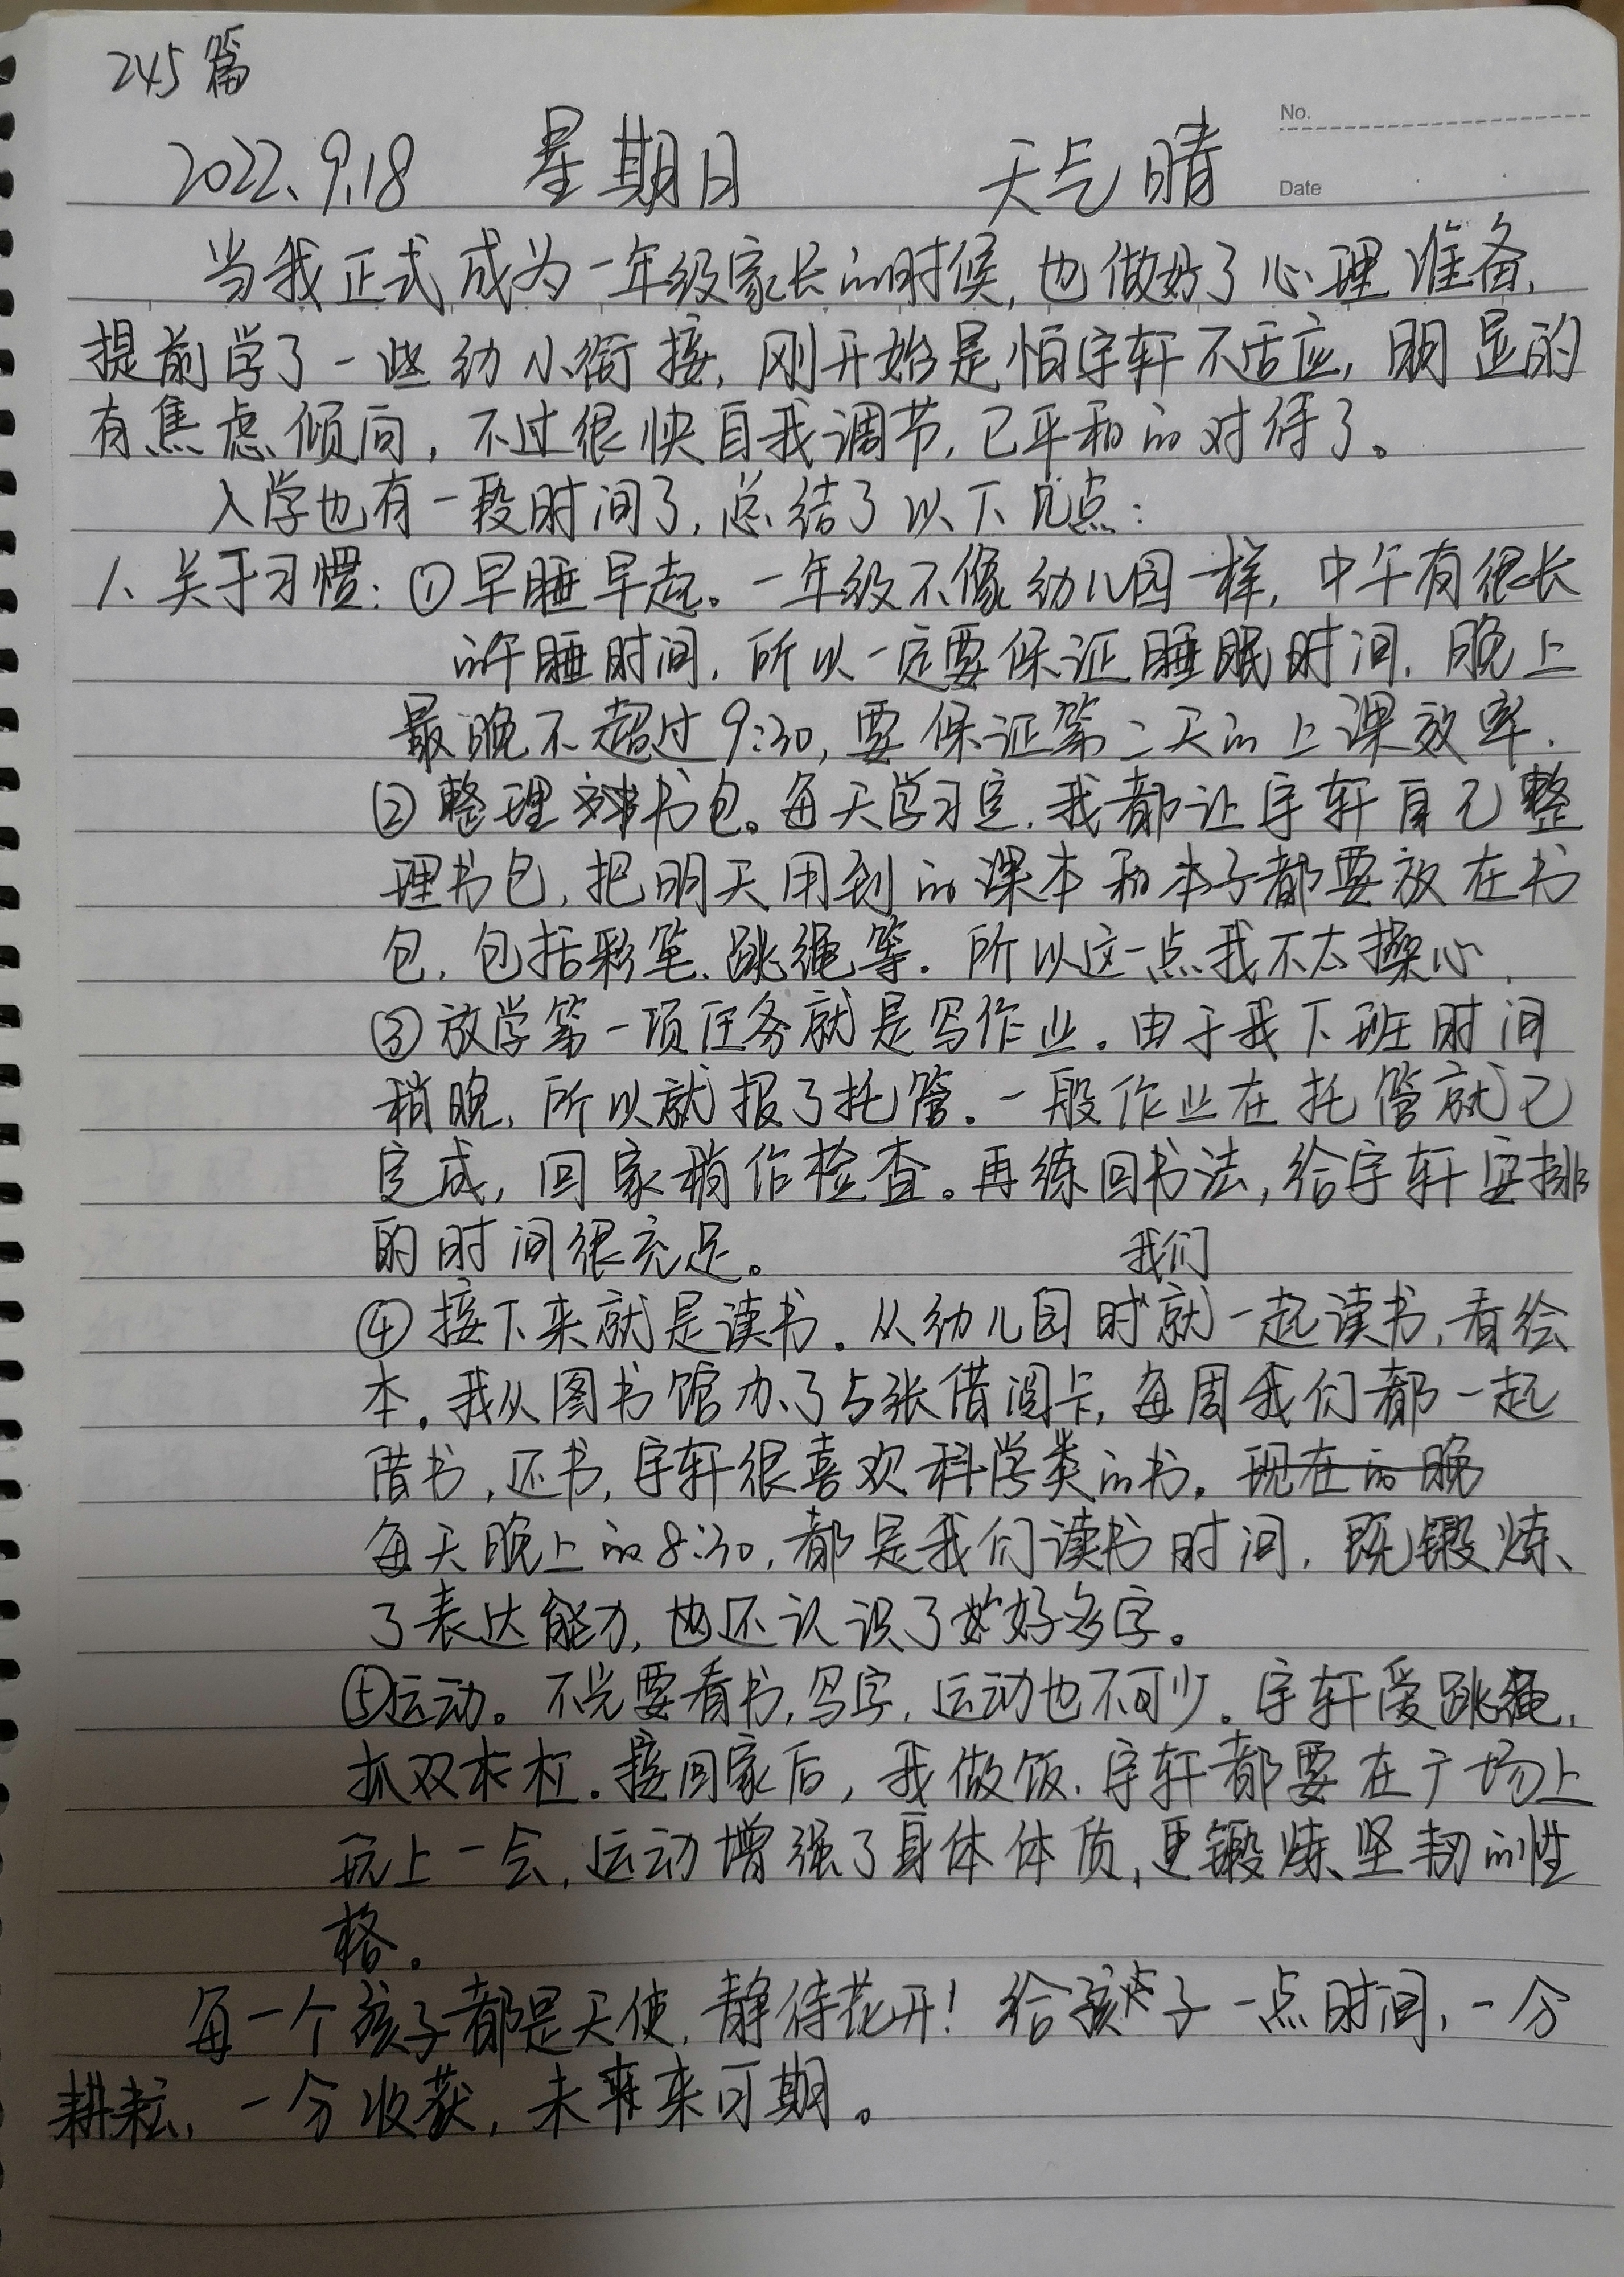 245篇
No.
2022.9.18 星期日 天气晴
Date
当我正式成为一年级家长的时候,也做好了心理准备,
提前学了一些幼小衔接,刚开始是怕宇轩不适应,明显的
有焦虑倾向,不过很快自我调节,已平和的对待了。
入学也有一段时间了,总结了以下几点:
1、关于习惯:①早睡早起。一年级不像幼儿园一样,中午有很长
的午睡时间,所以一定要保证睡眠时间,晚上
最晚不超过9:30,要保证第二天的上课效率.
②整理书包。每天学习完,我都让宇轩自己整
理书包,把明天用到的课本和本子都要放在书
包,包括彩笔、跳绳等.所以这一点我不太操心.
③放学第一项任务就是写作业.由于我下班时间
稍晚,所以就报了托管.一般作业在托管就已
完成,回家稍作检查。再练回书法,给宇轩安排
的时间很充足。
我们
④接下来就是读书.从幼儿园时就一起读书,看绘
本.我从图书馆办了5张借阅卡,每周我们都一起
借书,还书,宇轩很喜欢科学类的书.现在的晚
每天晚上的8:30,都是我们读书时间,既锻炼
了表达能力,也还认识了好多字。
⑤运动。不光要看书,写字,运动也不可少.宇轩爱跳绳,
抓双木杠.接回家后,我做饭.宇轩都要在广场上
玩上一会,运动增强了身体体质,更锻炼坚韧的性
格。
每一个孩子都是天使,静待花开!给孩子一点时间,一分
耕耘,一分收获,未来可期。